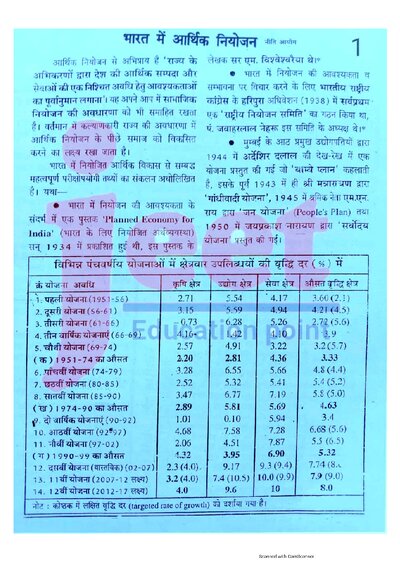 भारत में आर्थिक नियोजन नीति आयोग
1
आर्थिक नियोजन से अभिप्राय है 'राज्य के
अभिकरणों द्वारा देश की आर्थिक सम्पदा और
सेवाओं की एक निश्चित अवधि हेतु आवश्यकताओं
का पूर्वानुमान लगाना'। यह अपने आप में सामाजिक
नियोजन की अवधारणा को भी समाहित रखता
है। वर्तमान में कल्याणकारी राज्य की अवधारणा में
आर्थिक नियोजन के पीछे समाज को विकसित
करने का लक्ष्य रखा जाता है।
भारत में नियोजित आर्थिक विकास से सम्बद्ध
महत्वपूर्ण परीक्षोपयोगी तथ्यों का संकलन अधोलिखित
है। यथा—
● भारत में नियोजन की आवश्यकता के
संदर्भ में एक पुस्तक 'Planned Economy for
India' (भारत के लिए नियोजित अर्थव्यवस्था)
सन् 1934 में प्रकाशित हुई थी, इस पुस्तक के
लेखक सर एम. विश्वेश्वरैया थे।
● भारत में नियोजन की आवश्यकता व
सम्भावना पर विचार करने के लिए भारतीय राष्ट्रीय
कांग्रेस के हरिपुरा अधिवेशन (1938) में सर्वप्रथम
एक 'राष्ट्रीय नियोजन समिति' का गठन किया था,
पं. जवाहरलाल नेहरू इस समिति के अध्यक्ष थे।
● मुम्बई के आठ प्रमुख उद्योगपतियों द्वारा
1944 में अर्देशिर दलाल की देख-रेख में एक
योजना प्रस्तुत की गई जो 'बाम्बे प्लान' कहलाती
है, इसके पूर्व 1943 में ही श्री मन्नारायण द्वारा
'गांधीवादी योजना', 1945 में श्रमिक नेता एम.एन.
राय द्वारा 'जन योजना' (People's Plan) तथा
1950 में जयप्रकाश नारायण द्वारा 'सर्वोदय
योजना' प्रस्तुत की गई।
Education point
विभिन्न पंचवर्षीय योजनाओं में क्षेत्रवार उपलब्धियों की वृद्धि दर (% में)
क्र. योजना अवधि कृषि क्षेत्र उद्योग क्षेत्र सेवा क्षेत्र औसत वृद्धि क्षेत्र
1. पहली योजना (1951-56) 2.71 5.54 4.17 3.60 (2.1)
2. दूसरी योजना (56-61) 3.15 5.59 4.94 4.21 (4.5)
3. तीसरी योजना (61-66) 0.73 6.28 5.26 2.72 (5.6)
4. तीन वार्षिक योजनाएँ (66-69) 4.16 1.42 3.9
5. चौथी योजना (69-74) 2.57 4.91 3.22 3.2 (5.7)
(क) 1951-74 का औसत 2.20 2.81 4.36 3.33
6. पाँचवीं योजना (74-79) 3.28 6.55 5.66 4.8 (4.4)
7. छठवीं योजना (80-85) 2.52 5.32 5.41 5.4 (5.2)
8. सातवीं योजना (85-90) 3.47 6.77 7.19 5.8 (5.0)
(ख) 1974-90 का औसत 2.89 5.81 5.69 4.63
9. दो वार्षिक योजनाएँ (90-92) 1.01 0.10 5.94 3.4
10. आठवीं योजना (92-97) 4.68 7.58 7.28 6.68 (5.6)
11. नौवीं योजना (97-02) 2.06 4.51 7.87 5.5 (6.5)
(ग) 1990-99 का औसत 4.32 3.95 6.90 5.32
12. दसवीं योजना (वास्तविक) (02-07) 2.3 (4.0) 9.17 9.3 (9.4) 7.74
13. 11वीं योजना (2007-12 लक्ष्य) 3.2 (4.0) 7.4 (10.5) 10.0 (9.9) 7.9 (9.0)
14. 12वीं योजना (2012-17 लक्ष्य) 4.0 9.6 10 8.0
नोट : कोष्ठक में लक्षित वृद्धि दर (targeted rate of growth) को दर्शाया गया है।
Scanned with CamScanner